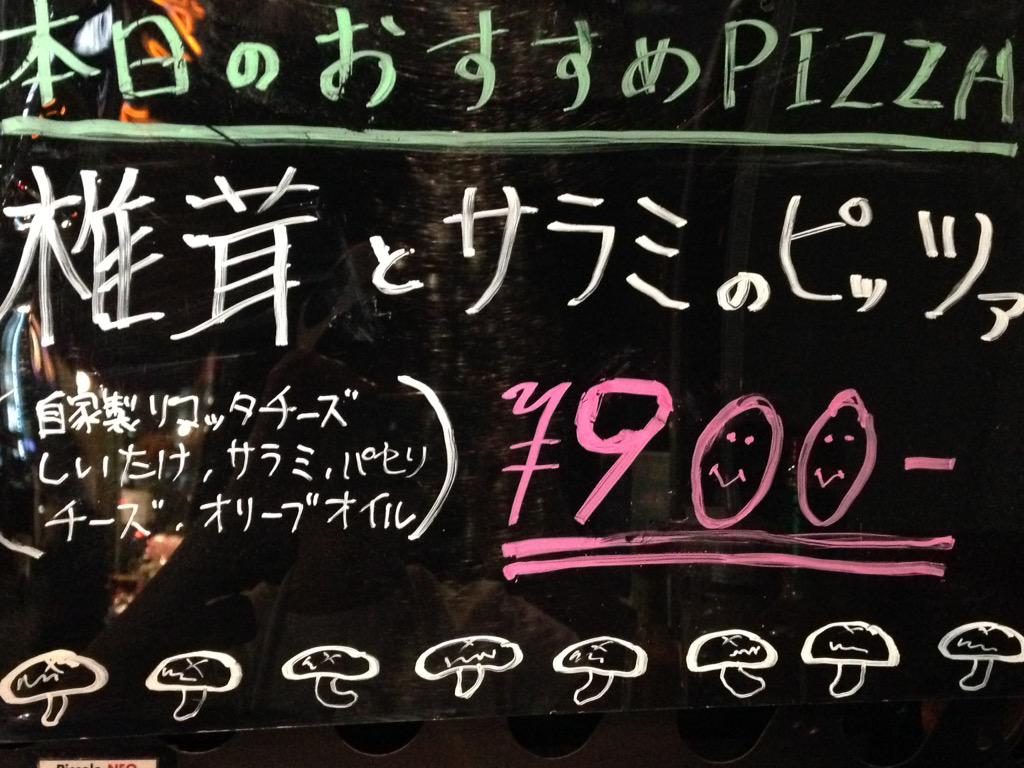 本日のおすすめPIZZA
椎茸とサラミのピッツァ
(自家製リコッタチーズ
しいたけ,サラミ,パセリ
チーズ、オリーブオイル)
¥900-
Piccolo NEO